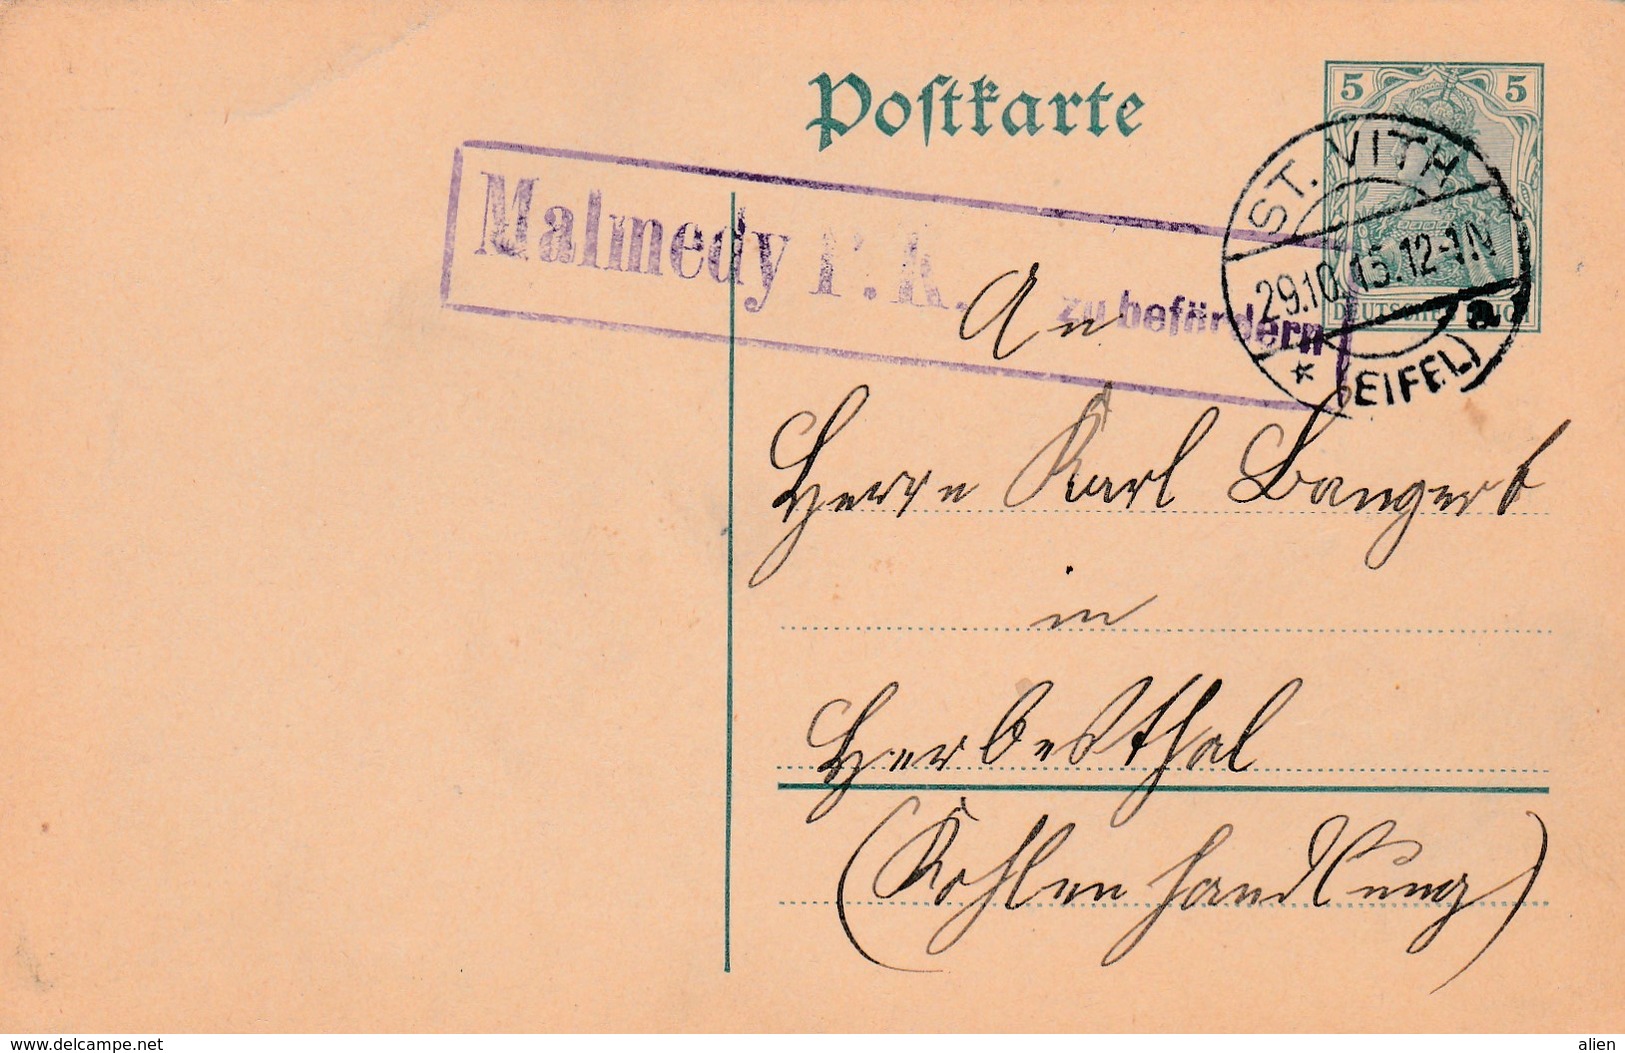 Postkarte
5 5
DEUTSCHES REICH
ST. VITH
29.10.15.12-1N
* (EIFEL) a
Malmedy P.K.
zu befördern
An
Herrn Karl Bangert
in
Herbesthal
(Kohlenhandlung)
www.delcampe.net
alien